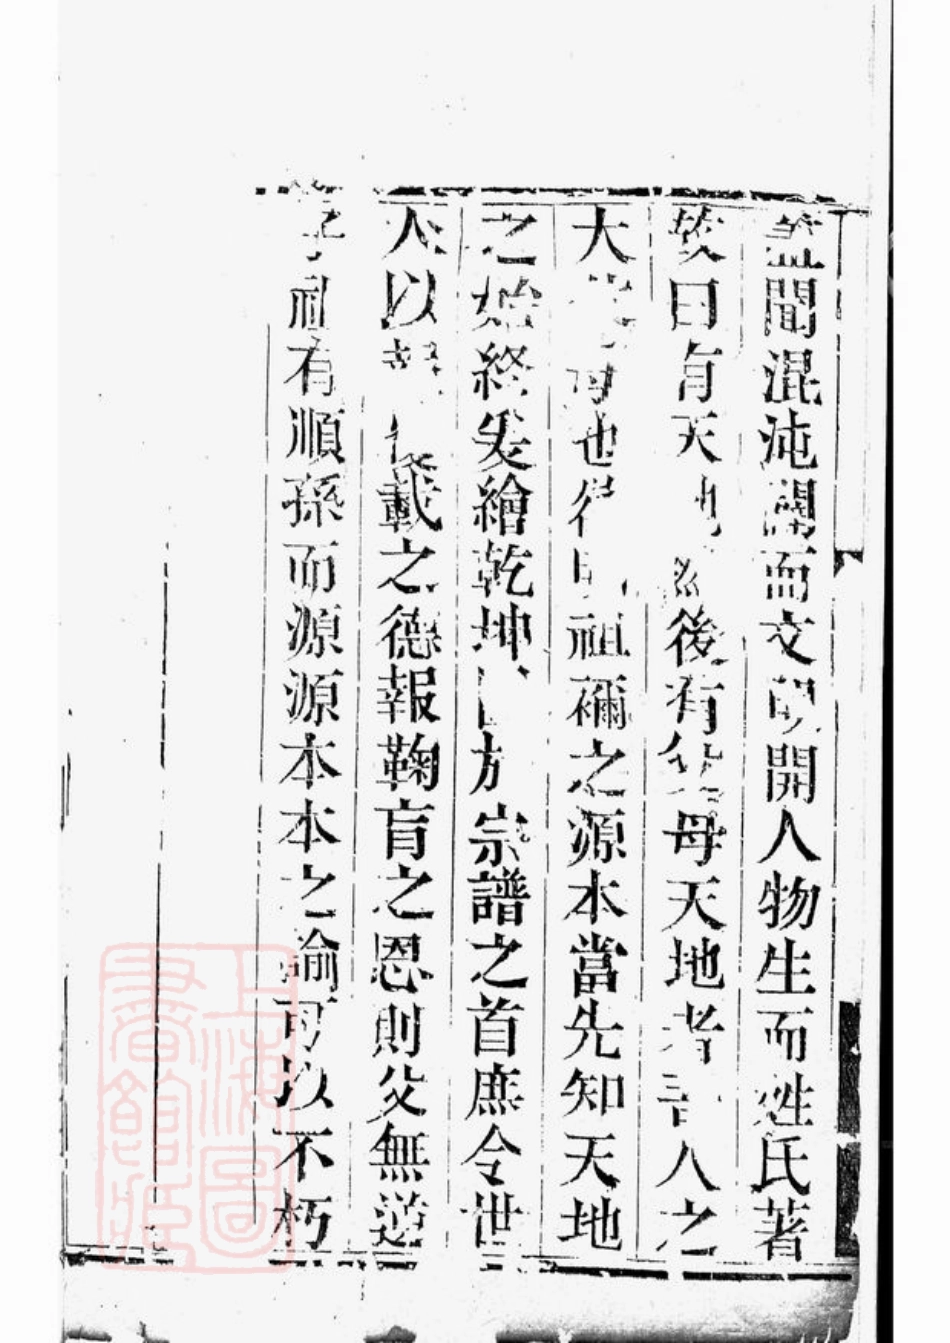 蓋聞混沌闢而文明開人物生而姓氏著
故曰有天地然後有父母天地者吾人之
大父母也欲明祖禰之源本當先知天地
之始終爰繪乾坤圖於宗譜之首庶令世
人以報覆載之德報鞠育之恩則父無逆
子祖有順孫而源源本本之論可以不朽
上海圖
書館藏